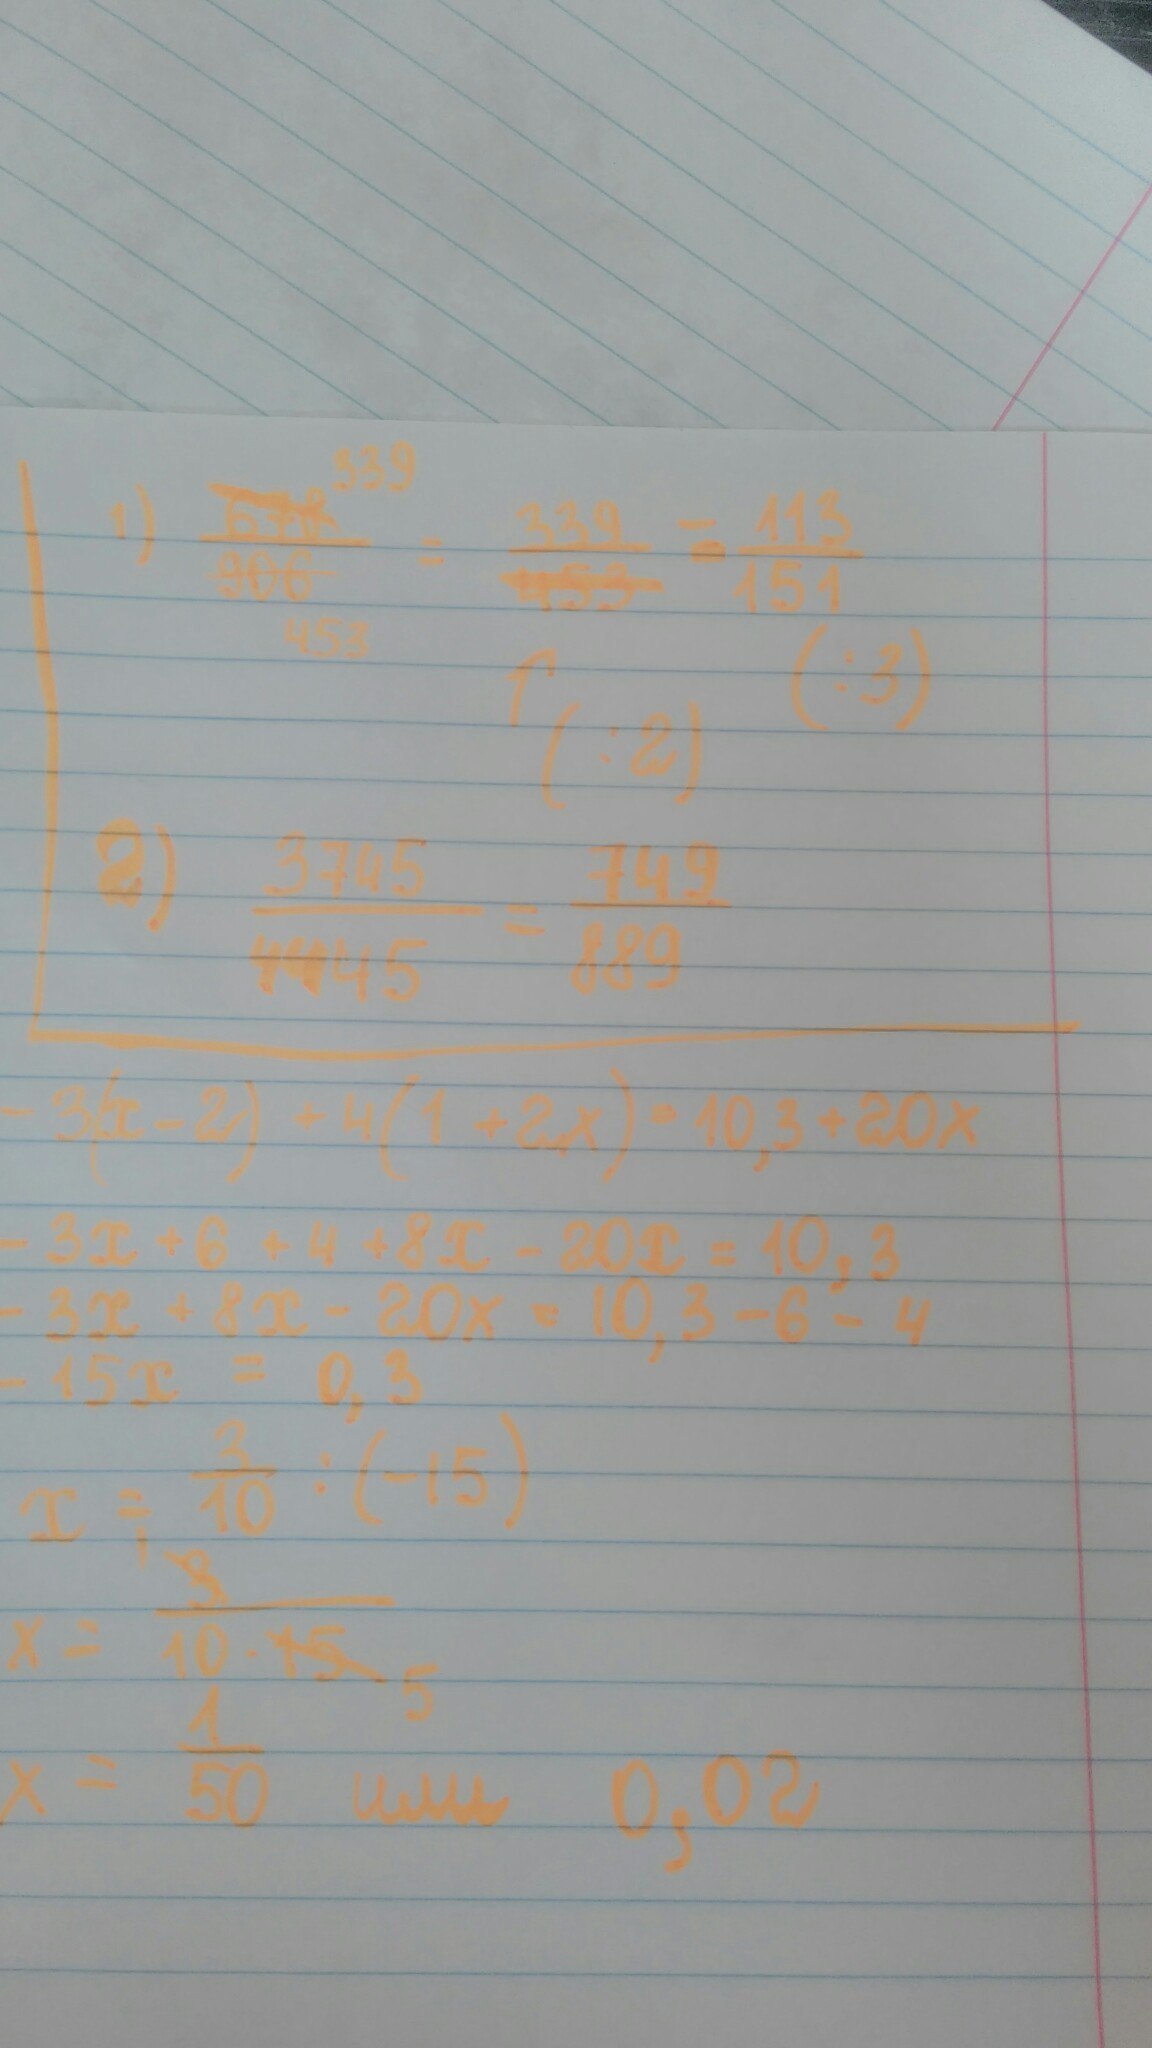 1) 678/906 339 453 = 339/453 = 113/151
(:3)
(:2)
2) 3745/4445 = 749/889
- 3(x - 2) + 4(1 + 2x) = 10,3 + 20x
- 3x + 6 + 4 + 8x - 20x = 10,3
- 3x + 8x - 20x = 10,3 - 6 - 4
- 15x = 0,3
x = 3/10 : (-15)
x = 3/10 · 15 5
x = 1/50 или 0,02